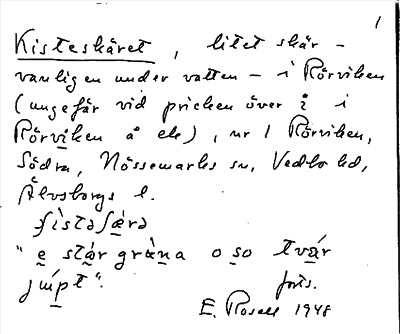 1
Kisteskäret, litet skär –
vanligen under vatten – i Rörviken
(ungefär vid pricken över i i
Rörviken å ek), nr 1 Rörviken,
Södra, Nössemarks sn, Vedbo hd,
Älvsborgs l.
"e står gräna o so tvår
forts.
E. Rosell 1948